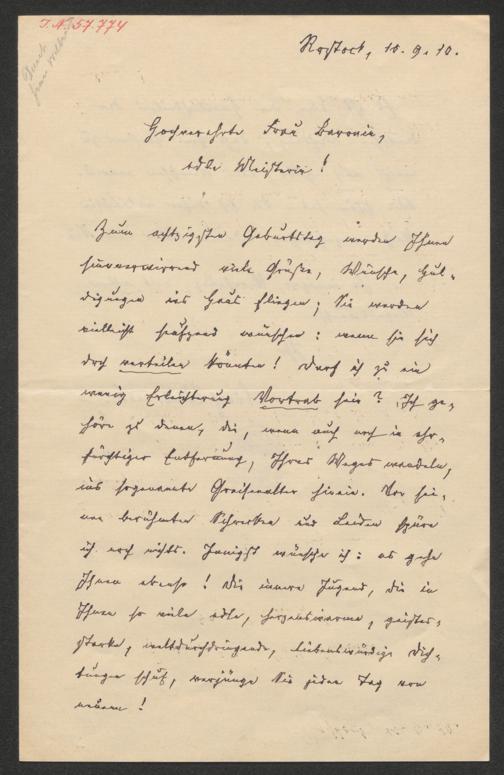 I. N. 57.774
Rostock, 10. 9. 10.
Hochverehrte Frau Baronin,
edle Meisterin!
Zum achtzigsten Geburtstag werden Ihnen
sinnverwirrend viele Grüße, Wünsche, Hul-
digungen ins Haus fliegen; Sie werden
vielleicht seufzend wünschen: wenn sie sich
doch verteilen könnten! Darf ich zu ein
wenig Erleichterung Vortrab sein? Ich ge-
höre zu denen, die, wenn auch noch in ehr-
fürchtiger Entfernung, Ihres Weges wandeln,
ins sogenannte Greisenalter hinein. Von sei-
nen berühmten Schrecken und Leiden spüre
ich noch nichts. Innigst wünsche ich: es gehe
Ihnen ebenso! Die innere Jugend, die in
Ihnen so viele edle, herzenswarme, geistes-
starke, weltdurchdringende, liebenswürdige Dich-
tungen schuf, verjünge Sie jeden Tag von
neuem!